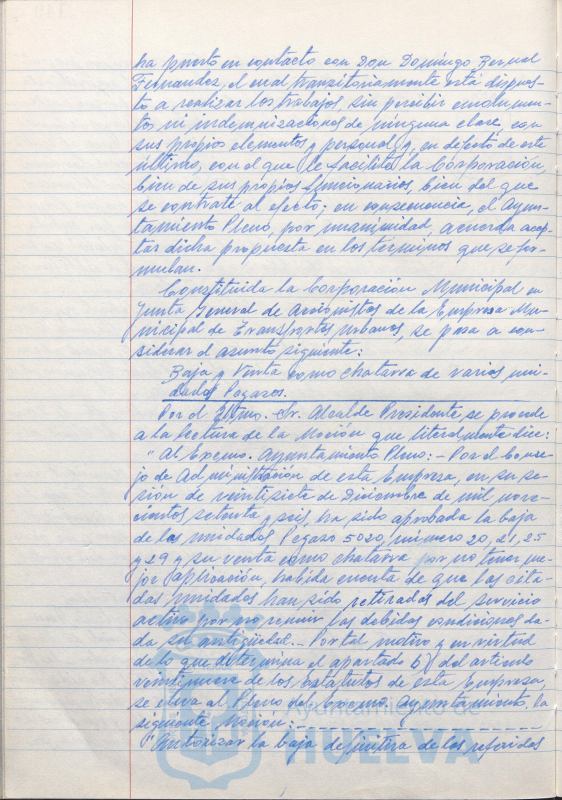 ha puesto en contacto con Don Domingo Bernal
Fernandez, el cual transitoriamente está dispues-
to a realizar los trabajos, sin percibir emolumen-
tos ni indemnizaciones de ninguna clase, con
sus propios elementos y personal y, en defecto de este
último, con el que le facilite la Corporación,
bien de sus propios funcionarios, bien del que
se contrate al efecto; en consecuencia, el Ayun-
tamiento Pleno, por unanimidad, acuerda acep-
tar dicha propuesta en los terminos que se for-
mulan.
Constituida la Corporación Municipal en
Junta General de Accionistas de la Empresa Mu-
nicipal de Transportes Urbanos, se pasa a con-
siderar el asunto siguiente:
Baja y Venta como chatarra de varias uni-
dades Pegasos.
Por el Iltmo. Sr. Alcalde Presidente se procede
a la lectura de la Moción que literalmente dice:
"Al Excmo. Ayuntamiento Pleno: - Por el Conse-
jo de Administración de esta Empresa, en su se-
sión de veintisiete de Diciembre de mil nove-
cientos setenta y seis, ha sido aprobada la baja
de las unidades Pegaso 5020, número 20, 21, 25
y 29 y su venta como chatarra por no tener me-
jor aplicación, habida cuenta de que las cita-
das unidades han sido retiradas del servicio
activo por no reunir las debidas condiciones da-
da su antigüedad.- Por tal motivo y en virtud
de lo que determina el apartado 6) del artículo
veintinueve de los Estatutos de esta Empresa,
se eleva al Pleno del Excmo. Ayuntamiento, la
siguiente Moción: -
"Autorizar la baja definitiva de los referidos
Ayuntamiento de
HUELVA